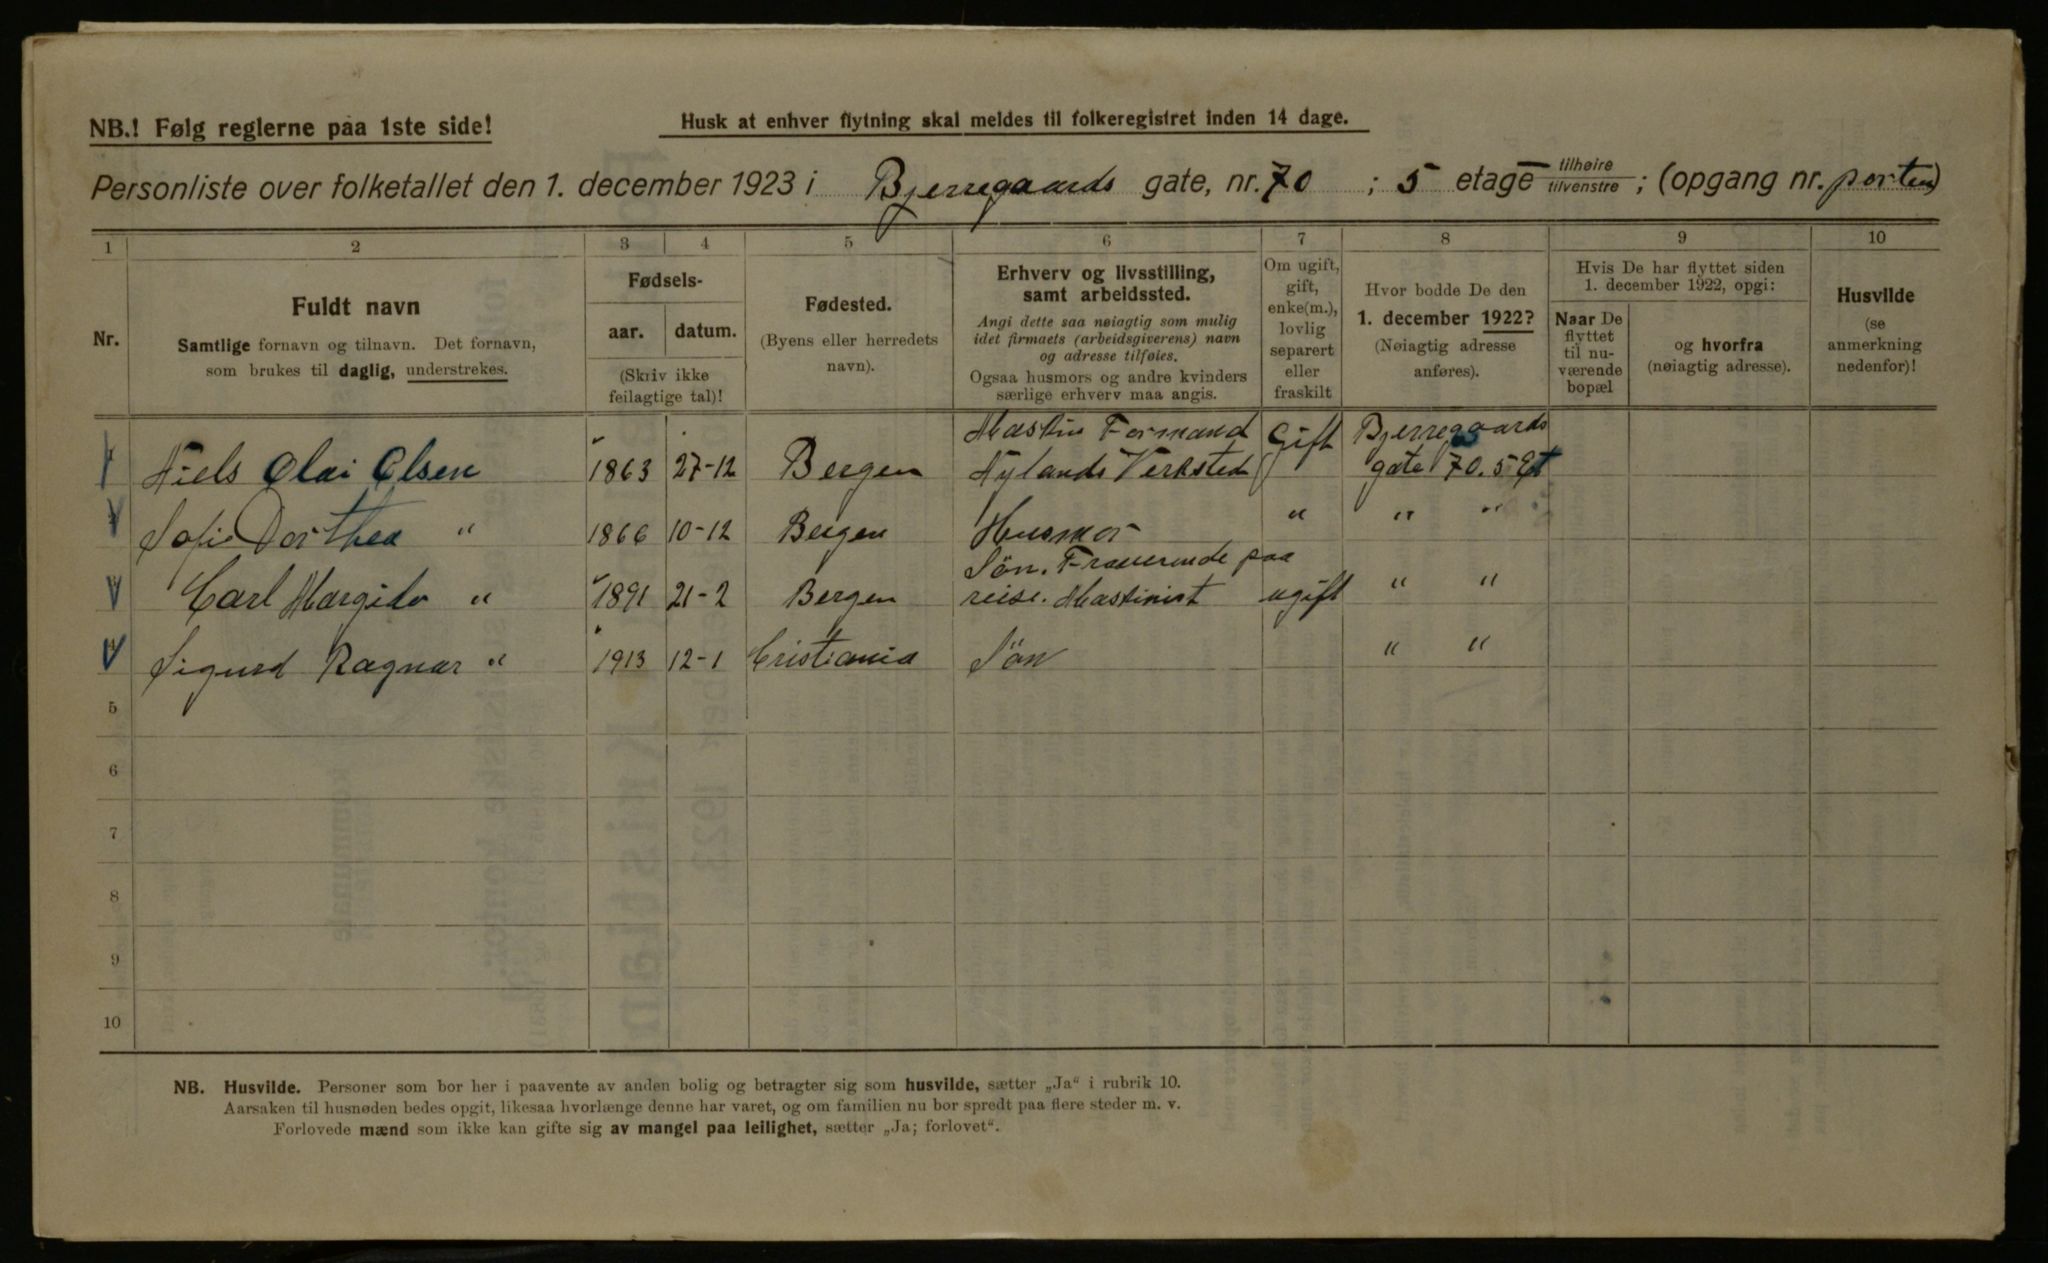 NB.! Følg reglerne paa 1ste side!
Husk at enhver flytning skal meldes til folkeregistret inden 14 dage.
Personliste over folketallet den 1. december 1923 i Bjerregaards gate, nr. 70 ; 5 etage tilhøire tilvenstre ; (opgang nr. porten)
1 2 3 4 5 6 7 8 9 10
Nr.
Fuldt navn
Samtlige fornavn og tilnavn. Det fornavn,
som brukes til daglig, understrekes.
Fødsels-
aar. datum.
(Skriv ikke
feilagtige tal)!
Fødested.
(Byens eller herredets
navn).
Erhverv og livsstilling,
samt arbeidssted.
Angi dette saa nøiagtig som mulig
idet firmaets (arbeidsgiverens) navn
og adresse tilføies.
Ogsaa husmors og andre kvinders
særlige erhverv maa angis.
Om ugift,
gift,
enke(m.),
lovlig
separert
eller
fraskilt
Hvor bodde De den
1. december 1922?
(Nøiagtig adresse
anføres).
Hvis De har flyttet siden
1. december 1922, opgi:
Naar De
flyttet
til nu-
værende
bopæl
og hvorfra
(nøiagtig adresse).
Husvilde
(se
anmerkning
nedenfor)!
Maskin Formand Gift Bjerregaards
Niels Olai Olsen 1863 27-12 Bergen Nylands Verksted gate 70. 5 Et
Sofie Dorthea " 1866 10-12 Bergen Husmor " " "
Søn. Fraverende paa
Carl Margido " 1891 21-2 Bergen reise. Maskinist ugift " "
Sigurd Ragnar " 1913 12-1 Cristiania Søn " "
5
6
7
8
9
10
NB. Husvilde. Personer som bor her i paavente av anden bolig og betragter sig som husvilde, sætter „Ja" i rubrik 10.
Aarsaken til husnøden bedes opgit, likesaa hvorlænge denne har varet, og om familien nu bor spredt paa flere steder m. v.
Forlovede mænd som ikke kan gifte sig av mangel paa leilighet, sætter „Ja; forlovet".